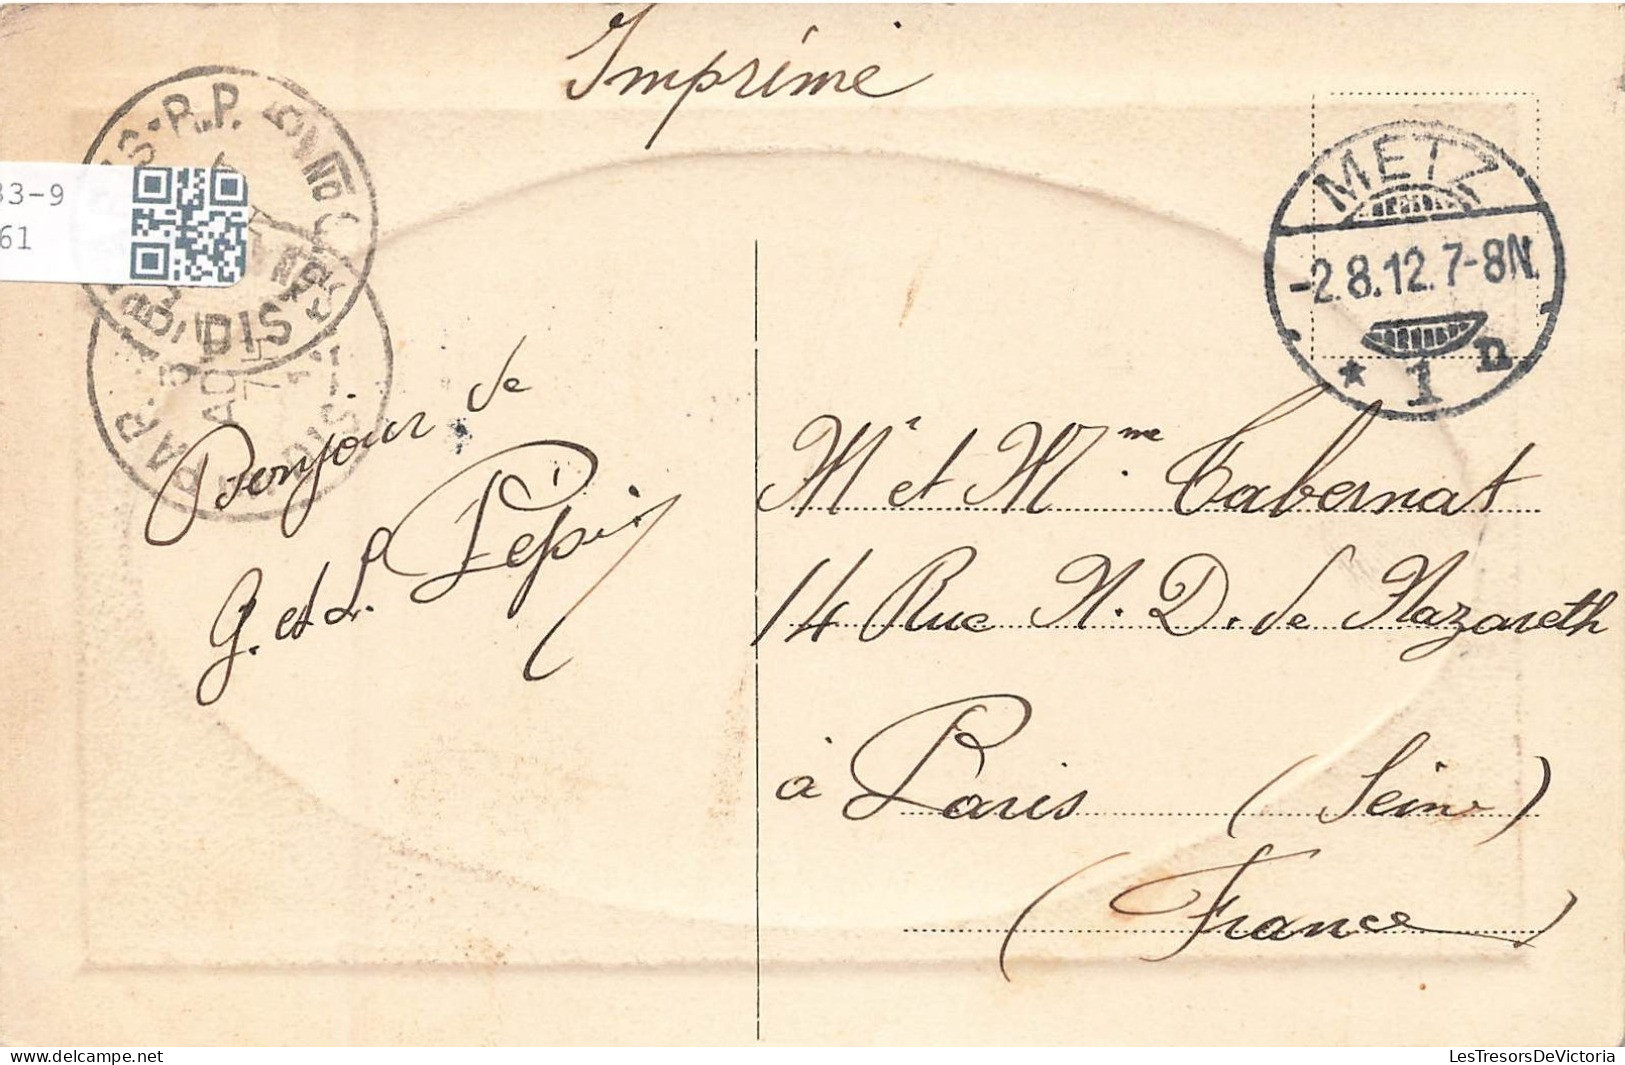 Imprimé
33-9
61
METZ
-2.8.12.7-8N.
* 1 n
Bonjour de
G. et L. Pépin
Mr et Mme Tabernat
14 Rue N. D. de Nazareth
à Paris (Seine)
(France)
delcampe.net
LesTresorsDeVictoria